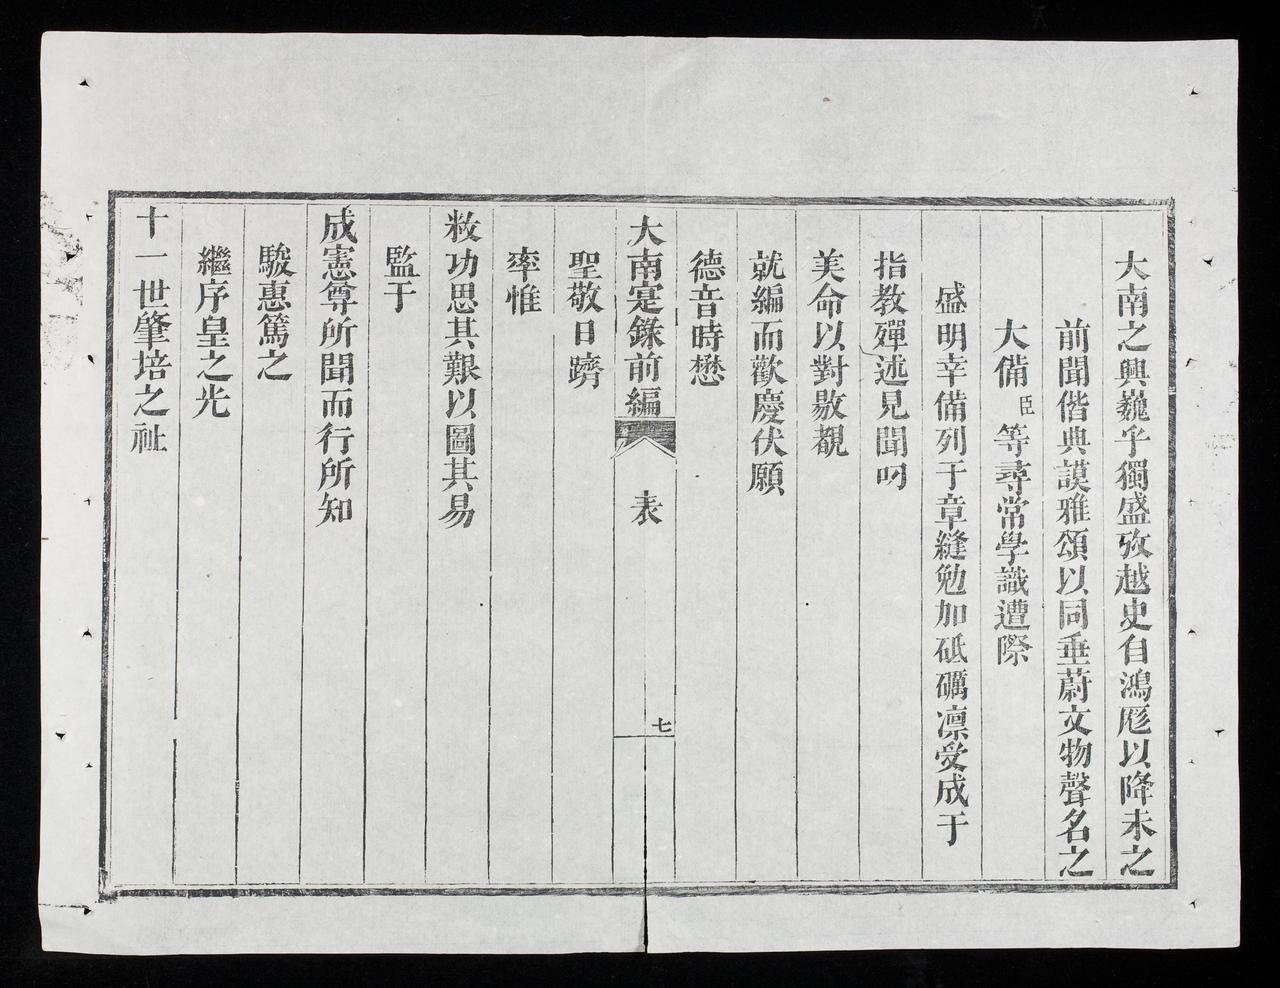 大南之興巍乎獨盛攷越史自鴻厖以降未之
前聞偕典謨雅頌以同垂蔚文物聲名之
大備臣等尋常學識遭際
盛明幸備列于章縫勉加砥礪凜受成于
指教殫述見聞叨
美命以對敭覩
就編而歡慶伏願
德音時懋
大南寔錄前編 表 七
聖敬日躋
率惟
敉功思其艱以圖其易
監于
成憲尊所聞而行所知
駿惠篤之
繼序皇之光
十一世肇培之祉